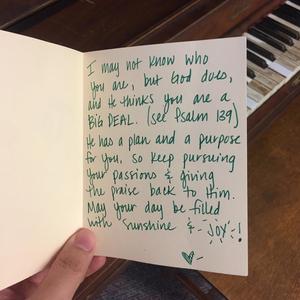 I may not know who
you are, but God does,
and He thinks you are a
BIG DEAL. (see Psalm 139)
He has a plan and a purpose
for you, so keep pursuing
your passions & giving
the praise back to Him.
May your day be filled
with sunshine & JOY!